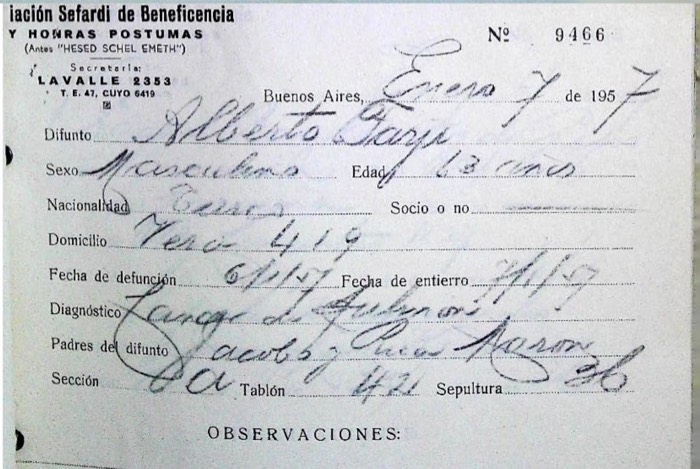 iación Sefardi de Beneficencia
Y HONRAS POSTUMAS
(Antes "HESED SCHEL EMETH")
Secretaría:
LAVALLE 2353
T. E. 47, CUYO 6419
Nº 9466
Buenos Aires, Enero 7 de 1957
Difunto Alberto
Sexo Masculino Edad 63 años
Nacionalidad Socio o no
Domicilio Vera 419
Fecha de defunción 6/1/57 Fecha de entierro 7/1/57
Diagnóstico de
Padres del difunto Jacobo y Aaron
Sección 6a Tablón 42 Sepultura 36
OBSERVACIONES: